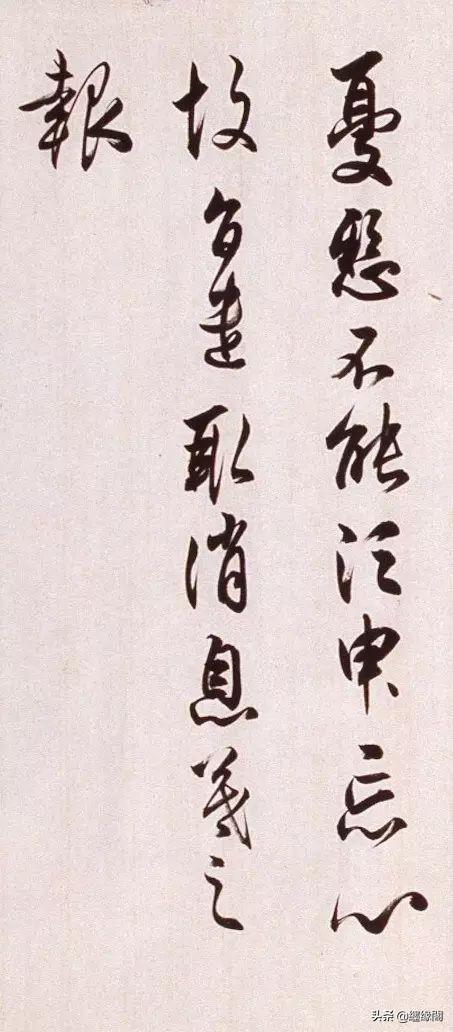 憂懸不能須臾忘心
故旨遣取消息羲之
報
头条